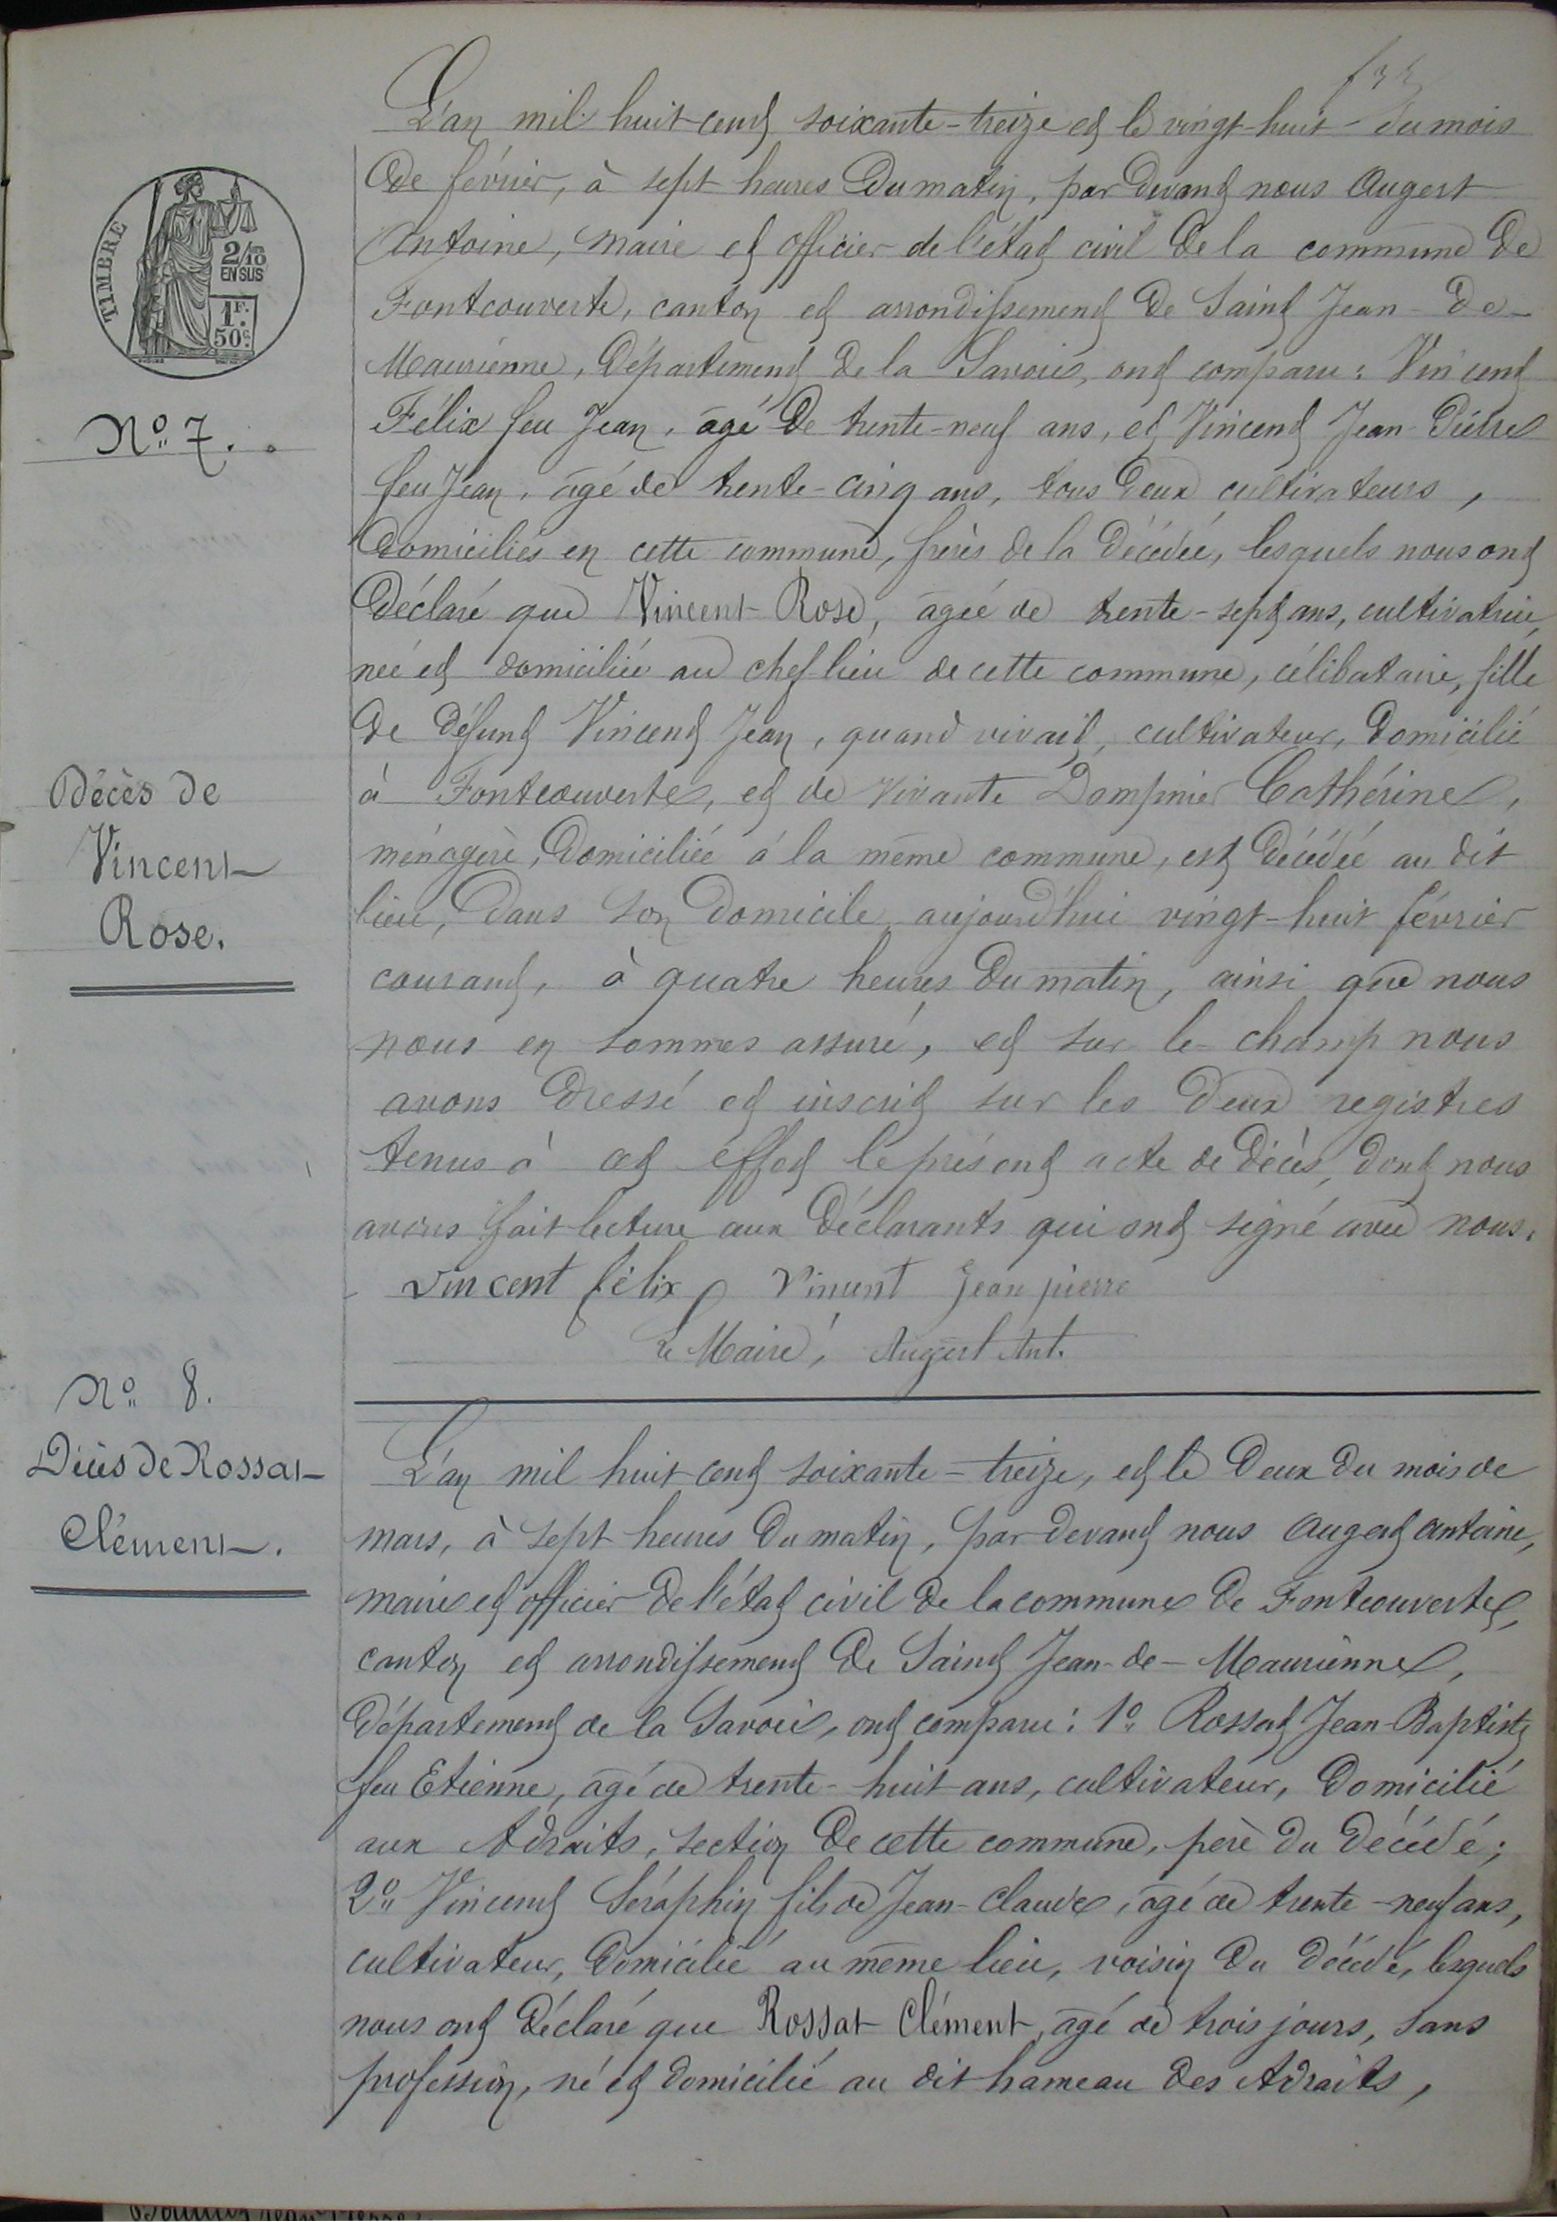 L'an mil huit cent soixante-treize et le vingt-huit du mois
de février, à sept heures du matin, par devant nous Augert
Antoine, maire et officier de l'état civil de la commune de
Fontcouverte, canton et arrondissement de Saint Jean-de-
Maurienne, département de la Savoie, ont comparu : Vincent
Félix feu Jean, agé de trente-neuf ans, et Vincent Jean-Pierre
feu Jean, agé de trente-cinq ans, tous deux cultivateurs,
domiciliés en cette commune, frères de la décédée, lesquels nous ont
déclaré que Vincent Rose, agée de trente-sept ans, cultivatrice,
née et domiciliée au chef lieu de cette commune, célibataire, fille
de défunt Vincent Jean, quand vivait, cultivateur, domicilié
à Fontcouverte, et de vivante Dompnier Cathérine,
ménagère, domiciliée à la même commune, est décédée au dit
lieu, dans son domicile, aujourd'hui vingt-huit février
courant, à quatre heures du matin, ainsi que nous
nous en sommes assuré, et sur le-champ nous
avons dressé et inscrit sur les deux registres
tenus à cet effet le présent acte de décès, dont nous
avons fait lecture aux déclarants qui ont signé avec nous.
vincent félix Vincent Jean pierre
Le Maire, Augert Ant.
TIMBRE
2/10
EN SUS
1F.
50c.
No. 7.
Décès de
Vincent
Rose.
No. 8.
Décès de Rossat
Clément.
L'an mil huit cent soixante-treize, et le deux du mois de
mars, à sept heures du matin, par devant nous Augert Antoine,
maire et officier de l'état civil de la commune de Fontcouverte,
canton et arrondissement de Saint Jean-de-Maurienne,
département de la Savoie, ont comparu : 1o. Rossat Jean-Baptiste
feu Etienne, agé de trente-huit ans, cultivateur, domicilié
aux Adraits, section de cette commune, père du décédé ;
2o. Vincent Séraphin fils de Jean-Claude, agé de trente-neuf ans,
cultivateur, domicilié au même lieu, voisin du décédé, lesquels
nous ont déclaré que Rossat Clément, agé de trois jours, sans
profession, né et domicilié au dit hameau des Adraits,